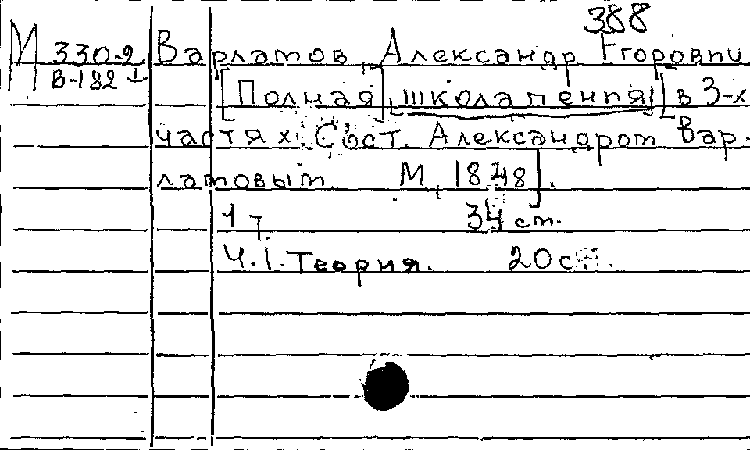 388
М 330-2 Варламов, Александр Егорович
В-182 I [Полная] школа пения [в 3-х
частях. Сост. Александром Вар-
ламовым М, 1848].
1 т 34 ст.
Ч.I. Теория. 20 ст.